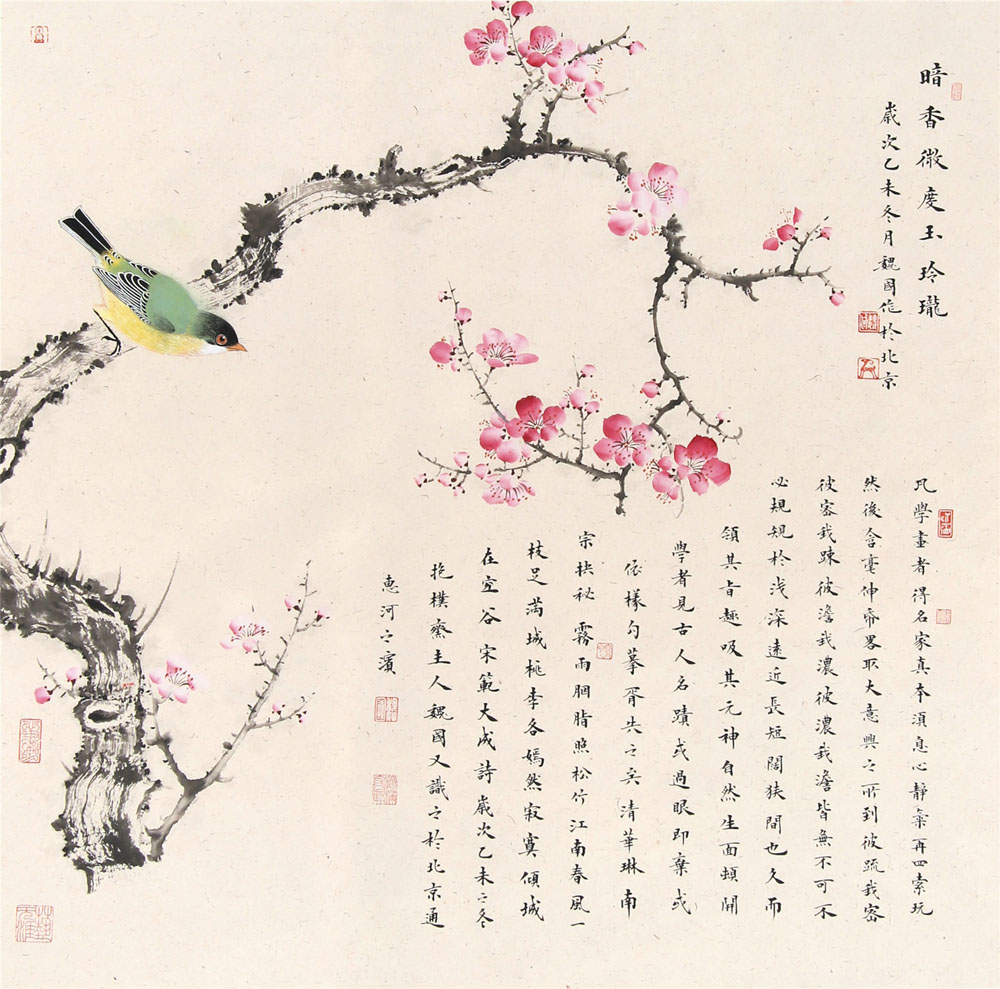 暗香微度玉玲瓏
歲次乙未冬月魏國作於北京
凡學畫者得名家真本須息心靜氣再四索玩
然後含毫伸帋畧取大意興之所到彼疏我密
彼密我踈彼澹我濃彼濃我澹皆無不可不
必規規於浅深遠近長短闊狹間也久而
領其旨趣吸其元神自然生面頓開
學者見古人名蹟或過眼即棄或
依樣勾摹胥失之矣 清華琳南
宗抉祕 霧雨胭脂照松竹江南春風一
枝足滿城桃李各嫣然寂寞傾城
在空谷 宋範大成詩 歲次乙未之冬
抱樸齋主人魏國又識之於北京通
惠河之濱